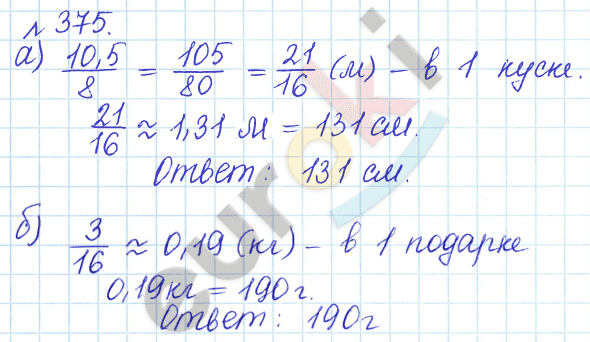 № 375.
а) 10,5/8 = 105/80 = 21/16 (м) – в 1 куске.
21/16 ≈ 1,31 м = 131 см.
Ответ: 131 см.
б) 3/16 ≈ 0,19 (кг) – в 1 подарке
0,19 кг = 190 г.
Ответ: 190 г
euroki